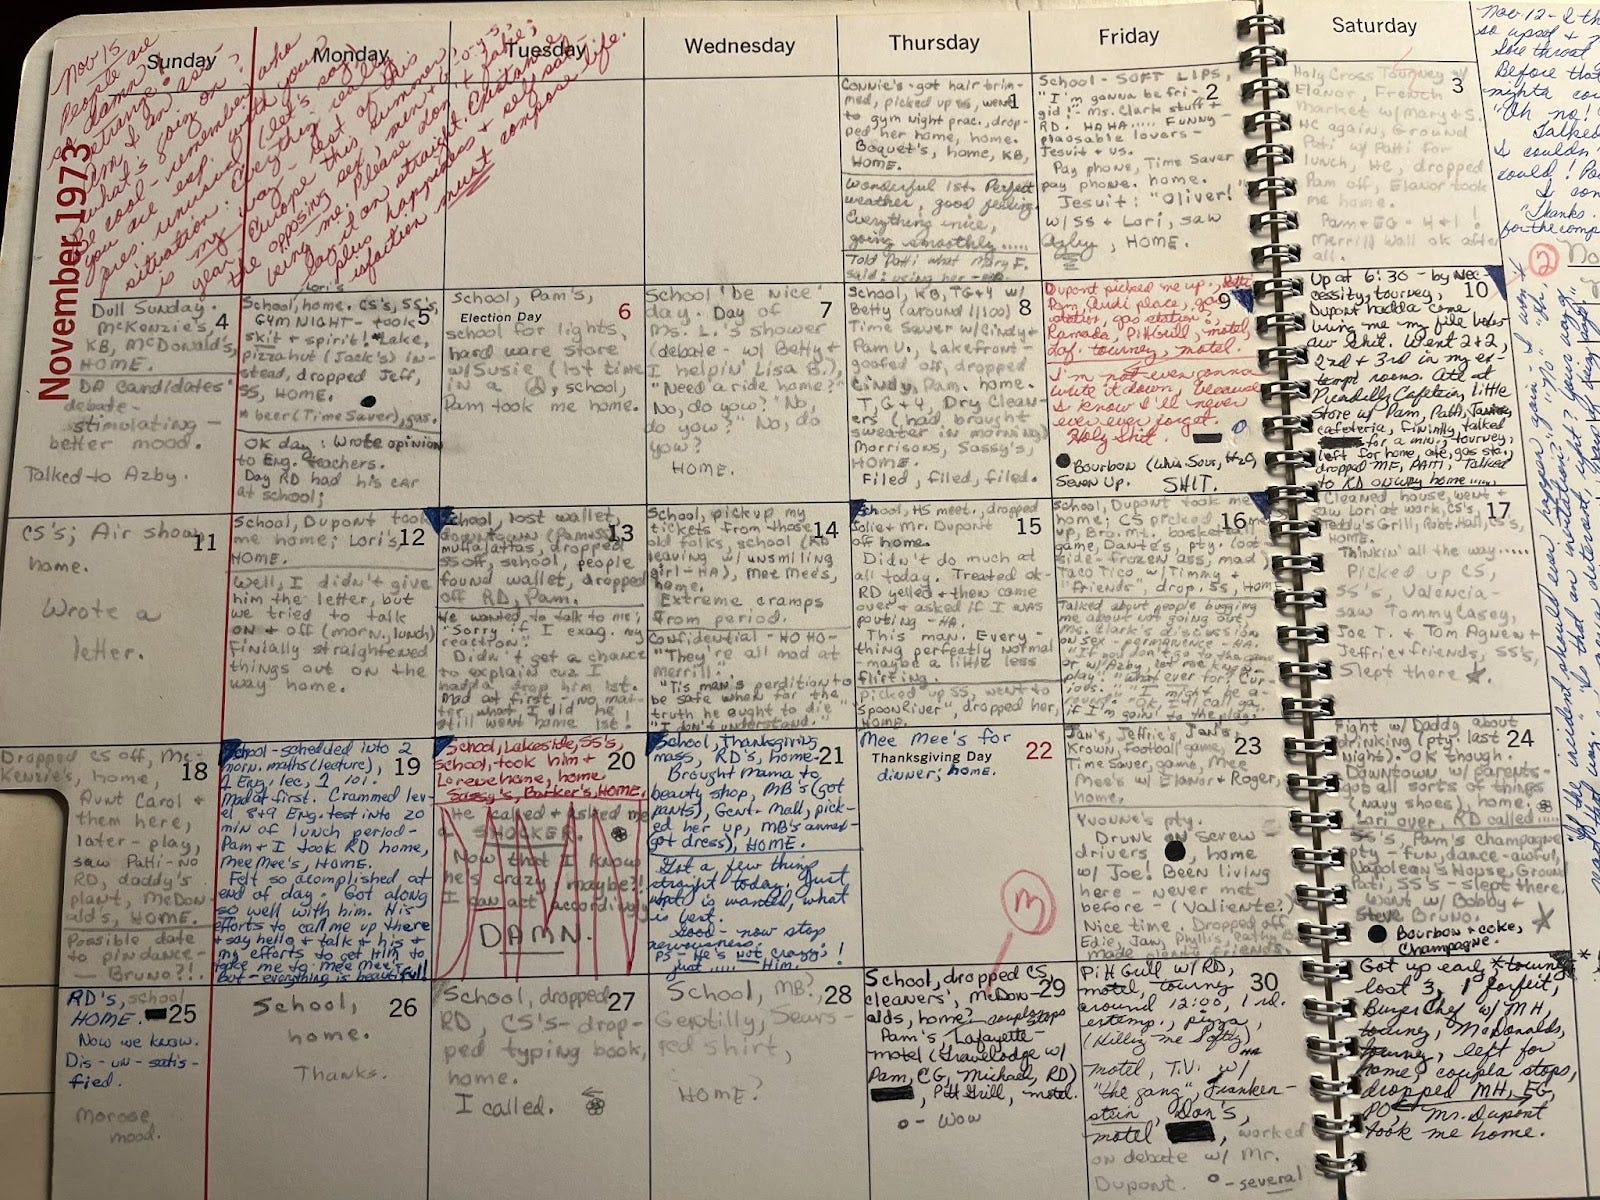 November 1973
Sunday
Monday
Tuesday
Wednesday
Thursday
Friday
Saturday
Nov 15
People are
so damn
strange!
Am I an ass-
what's going on?
Be cool - remember who
you are esp. with you?
pres. unusual (let's say
situation. Everything really
is my way - last of this
year, Europe this summer,
the opposing sex, men + b-o-y-s,
being me. Please don't fake;
lay it on straight. Existance
plus happiness + self sat-
isfaction must compose life.
1
Connie's - got hair trim-
med, picked up SS, went
to gym night prac., drop-
ped her home, home.
Boquet's, home, KB,
HOME.
Wonderful 1st. Perfect
weather, good feeling.
Everything nice,
going smoothly.....
Told Patti what Mary F.
said: using her -
2
School - SOFT LIPS,
"I'm gonna be fri-
gid! - Ms. Clark stuff +
RD. HA HA..... FUNNY -
plaosable lovers -
Jesuit + us.
Pay phone, Time Saver
pay phone. home.
Jesuit: "Oliver!"
w/ SS + Lori, saw
Azby, HOME.
3
Holy Cross Tourney w/
Elanor, French
Market w/ Mary + S.
HC again, Ground
Pati w/ Patti for
lunch, HC, dropped
Pam off, Elanor took
me home.
Pam + EG - 4+1!
Merrill Wall ok after
all.
4
Dull Sunday.
McKenzie's,
KB, McDonald's,
HOME.
DA candidates'
debate -
stimulating -
better mood.
Talked to Azby.
5
Lori's
School, home. CS's, SS's,
GYM NIGHT - took
skit + spirit! *Lake,
pizza hut (Jack's) in-
stead, dropped Jeff,
SS, HOME.
* beer (Time Saver), gas.
OK day: Wrote opinion
to Eng. teachers.
Day RD had his car
at school;
6
Election Day
School, Pam's,
school for lights,
hard ware store
w/ Susie (1st time
in a), school,
Pam took me home.
7
School 'be nice'
day. Day of
Ms. L.'s shower
(debate - w/ Betty +
I helpin' Lisa B.),
"Need a ride home?"
No, do you?" "No,
do you?" "No, do
you?"
HOME.
8
School, KB, TG+Y w/
Betty (around 1:00)
Time Saver w/ Cindy +
Pam U., Lakefront -
goofed off, dropped
Cindy, Pam. home.
T, G + Y, Dry Clean-
ers (had brought
sweater in morning)
Morrisons, Sassy's,
HOME.
Filed, filed, filed.
9
Dupont picked me up, Patti
Pam, Audi place, gas
station, gas station,
Ramada, Pitt Grill, motel,
Laf. tourney, motel.
I'm not even gonna
write it down, because
I know I'll never
ever ever forget.
Holy shit.
Bourbon (Whis. Sour, H2O,
Seven Up. SHIT.
10
Up at 6:30 - by nec-
cessity, tourney,
Dupont hadda come
bring me my file box
aw shit. Went 2+2,
2nd + 3rd in my ex-
tempt rooms. Ate at
Picadilly Cafeteria, little
store w/ Pam, Patti,
cafeteria, finially talked
for a min., tourney,
left for home, ate, gas sta.,
dropped MF, PATTI, Talked
to RD on way home......
11
CS's; Air show,
home.
Wrote a
letter.
12
School, Dupont took
me home; Lori's,
HOME.
Well, I didn't give
him the letter, but
we tried to talk
on + off (morn., lunch)
Finially straightened
things out on the
way home.
13
School, lost wallet,
downtown (Pam + SS)
muffalattas, dropped
SS off, school, people
found wallet, dropped
off RD, Pam.
He wanted to talk to me;
"Sorry if I exag. my
reaction."
Didn't get a chance
to explain cuz I
hadda drop him 1st.
Mad at first - no mat-
ter what I did he
still went home 1st!
14
School, pickup my
tickets from those
old folks, school (RD
leaving w/ unsmiling
girl - HA), Mee Mee's,
home.
Extreme cramps
from period.
Confidential - HO HO -
"They're all mad at
Merrill."
"'Tis man's perdition to
be safe when for the
truth he ought to die"
"I don't understand."
15
School, HS meet., dropped
Jolie + Mr. Dupont
off home.
Didn't do much at
all today. Treated ok -
RD yelled + then came
over + asked if I was
pouting - HA.
This man. Every-
thing perfectly normal
- maybe a little less
flirting.
picked up SS, went to
"Spoon River", dropped her,
HOME.
16
School, Dupont took me
home; CS picked
up, Bro. Mt. basketball
game, Dante's, pty. (out-
side - frozen ass, mad)
Taco Tico w/ Timmy +
"friends", drop. SS, HOME
Talked about people bugging
me about not going out,
Ms. Clark's discussion
on sex - permanence - HA.
"If you don't go to the game
or w/ Azby, let me know -
play." "What ever for? Cur-
ious." "I might be a-
"OK, I'll call ya
if I'm goin' to the play."
17
Cleaned house, went +
saw Lori at work, CS's,
Teddy's Grill, Robt. Hall, CS's,
HOME.
Thinkin' all the way.....
Picked up CS,
SS's, Valencia -
saw Tommy Casey,
Joe T. + Tom Agnew +
Jeffrie + friends, SS's,
Slept there
18
Dropped CS off, Mc-
Kenzie's, home,
Aunt Carol +
them here,
later - play,
saw Patti - no
RD, daddy's
plant, McDon-
ald's, HOME.
Possible date
to pindance -
— Bruno?!.
19
School - scheduled into 2
morn. maths (lecture),
1 Eng. lec, 1 ioi.
Mad at first. Crammed lev-
el 8+9 Eng. test into 20
min of lunch period -
Pam + I took RD home,
Mee Mee's, HOME.
Felt so acomplished at
end of day. Got along
so well with him. His
efforts to call me up there
+ say hello + talk + his +
my efforts to get Him to
take me to Mee Mee's.
But - everything is beautifull
20
School, Lakeside, SS's,
school, took him +
home, home
Sassy's, Barker's, HOME.
He called + asked me
- SHOCKER.
Now that I know
he's crazy; maybe?!
I can act accordingly
DAMN
DAMN.
21
School, thanksgiving
mass, RD's, home -
Brought Mama to
beauty shop, MB's (got
pants), Gent. Mall, pick-
ed her up, MB's annex -
got dress), HOME.
Got a few thing
straight today. Just
what is wanted, what
is best.
Good - now stop
nervousness.
PS - He's not crazy!!
just ..... Him.
22
Thanksgiving Day
Mee Mee's for
dinner; home.
23
Jan's, Jeffrie's, Jan's,
Krown, football game,
Time Saver, game, Mee
Mee's w/ Elanor + Roger,
home.
Yvonne's pty.
Drunk on screw
drivers, home
w/ Joe! Been living
here - never met
before - (Valiente?)
Nice time. Dropped off
Edie, Jan, Phyllis,
Made plenty friends.
24
Fight w/ Daddy about
drinking (pty. last
night). OK though.
Downtown w/ parents -
got all sorts of things
(navy shoes), home,
Lori over, RD called....
SS's, Pam's champagne
pty - fun, dance - awful,
Napolean's House, Ground
Pati, SS's - slept there,
Went w/ Bobby +
Steve Bruno.
Bourbon + coke,
Champagne.
25
RD's, school
HOME.
Now we know.
Dis - un - satis -
fied.
Morose
mood.
26
School,
home.
Thanks.
27
School, dropped
RD, CS's - drop-
ped typing book,
home.
I called.
28
School, MB?,
Gentilly, Sears -
red shirt,
HOME?
29
School, dropped CS,
cleaners', McDon-
alds, home? couple stops
Pam's, Lafayette -
motel (Travelodge w/
Pam, EG, Michael, RD)
, Pitt Grill, motel.
o - Wow
30
Pitt Grill w/ RD,
motel, tourny
around 12:00, 1 rd.
extemp., pizza,
(Killing me Softly)
motel, T.V. w/
"the gang", Franken-
stein, Don's,
motel, worked
on debate w/ Mr.
Dupont. o - several
Got up early, tourny
lost 3, 1 forfeit,
Burger Chef w/ MH,
tourny, McDonalds,
tourny, left for
home, coupla stops,
dropped MH, EG,
PO, Mr. Dupont
took me home.
Nov 12 - I th
so upset +
Sore throat
Before that
mighta cou
"Oh no!
Talked
I couldn'
could! Pa
I con
"Thanks.
for the comp
2
"If the incident should ever happen again - I
"Is that an invitation?